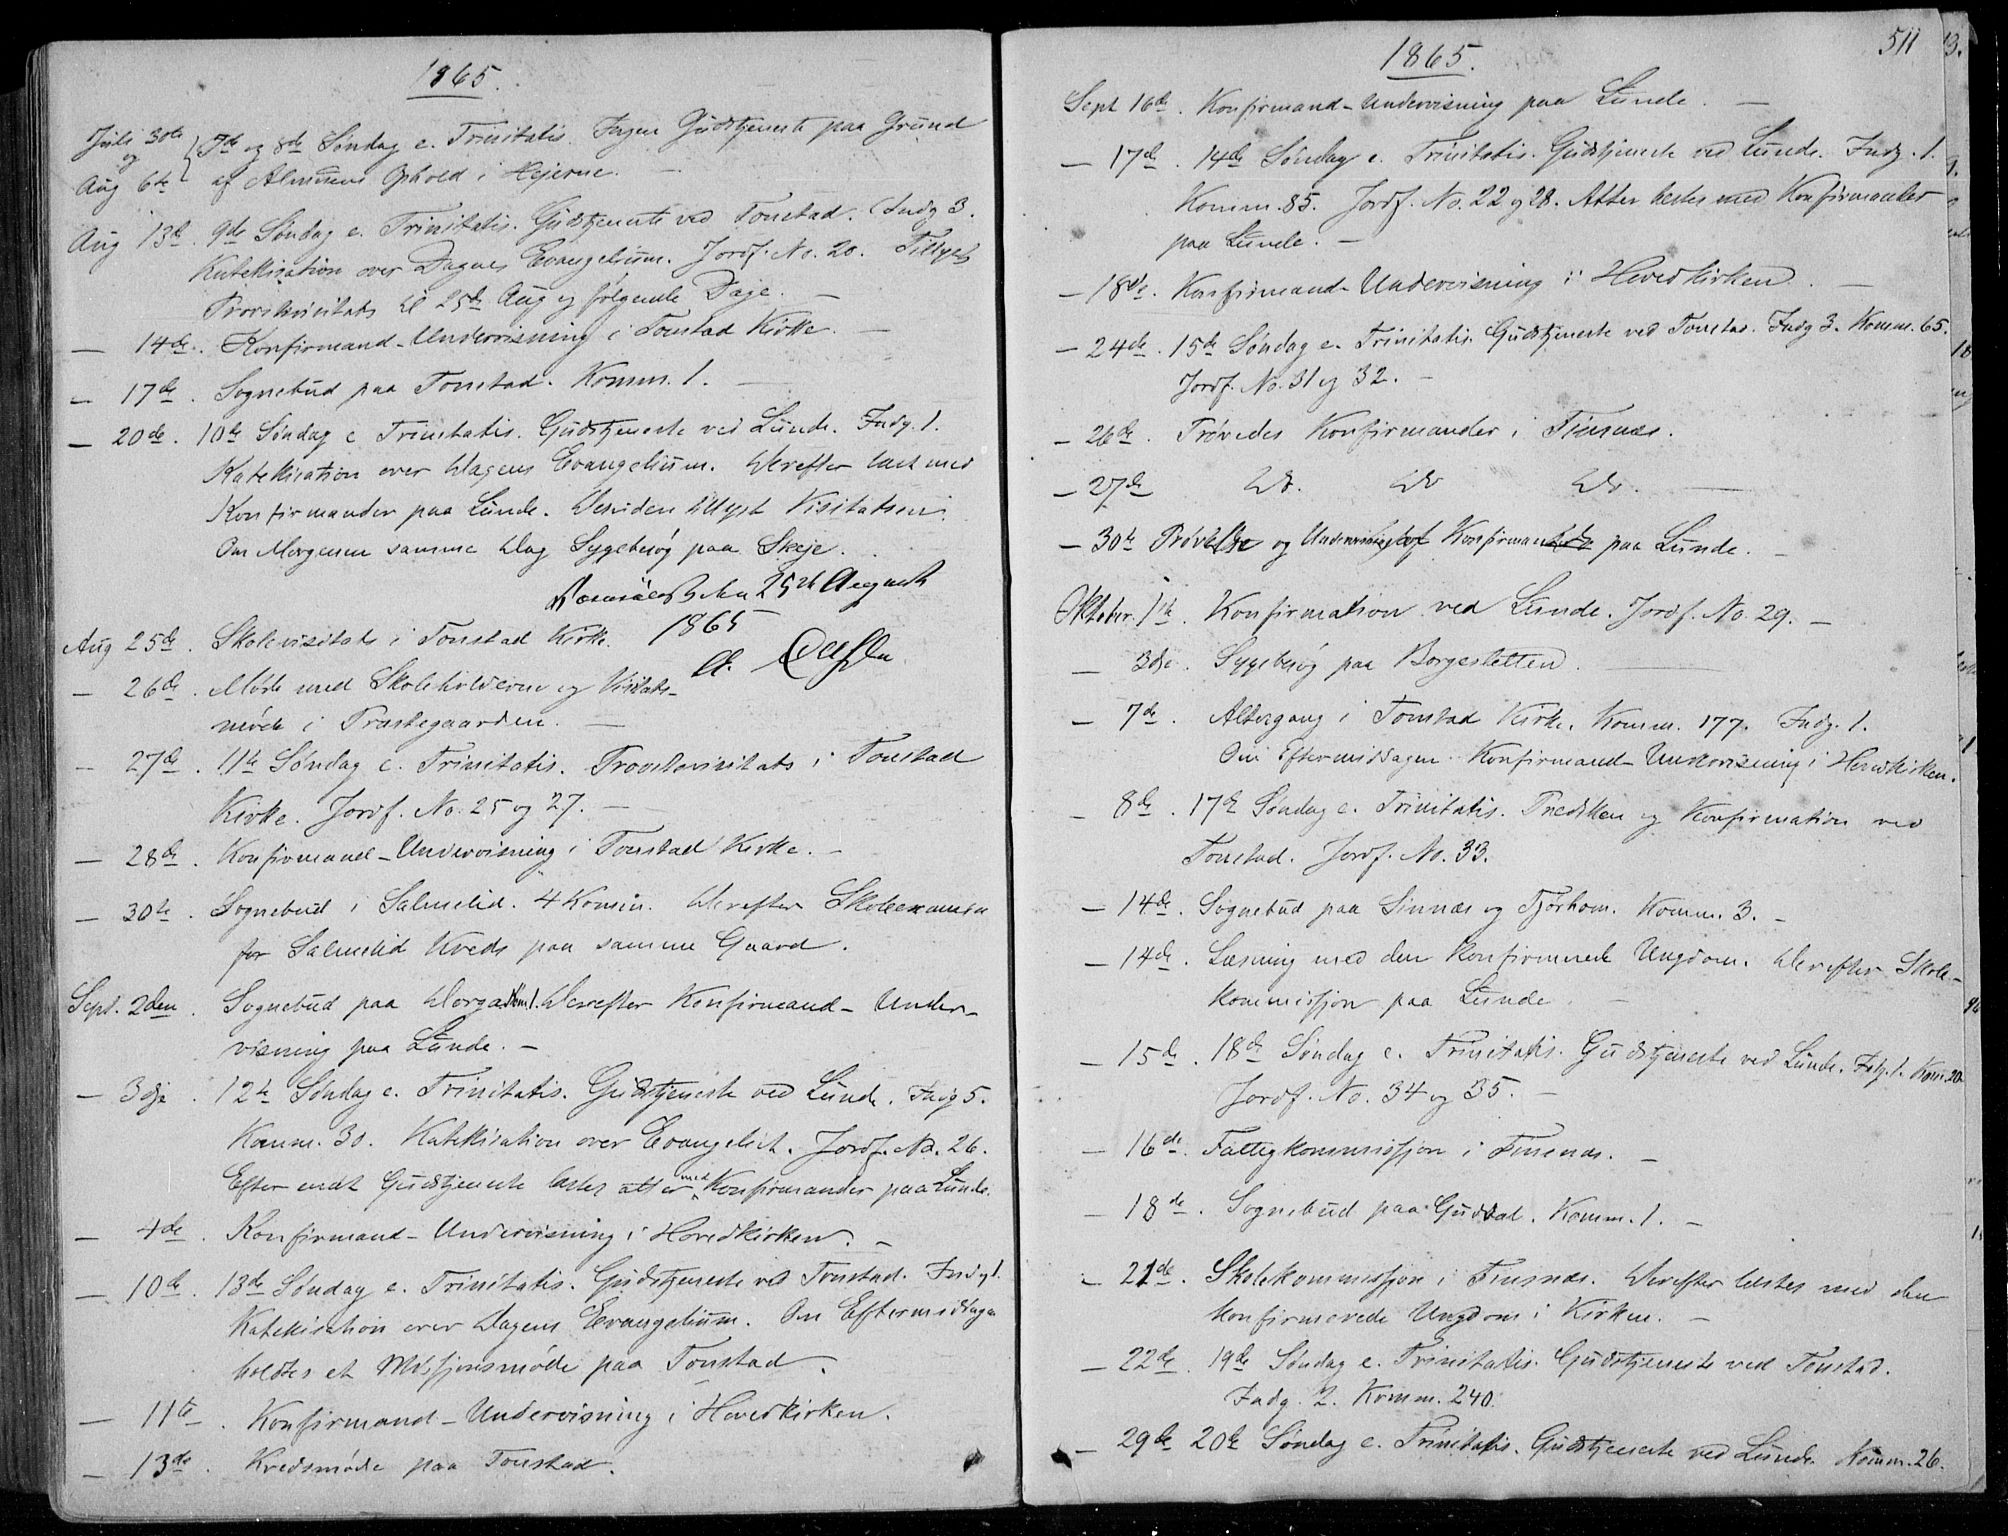 1865.
Juli 30te og Aug 6te } 7de og 8de Søndag e. Trinitatis. Ingen Gudstjeneste paa Grund
af Almuens Ophold i Hejerne. —
Aug 13de. 9de Søndag e. Trinitatis. Gudstjeneste ved Tonstad. Indg 3.
Katekisation over Dagens Evangelium. Jordf. No. 20. Tillyst
Provstevisitats til 25de Aug og følgende Dage. —
— 14de. Konfirmand-Undervisning i Tonstad Kirke. —
— 17de. Sognebud paa Tonstad. Komm. 1. —
— 20de. 10de Søndag e Trinitatis. Gudstjeneste ved Lunde. Indg. 1.
Katekisation over Dagens Evangelium. Derefter læst med
Konfirmander paa Lunde. Desuden tillyst Visitatsen.
Om Morgenen samme Dag Sygebesøg paa Skeje.
den 25de August
1865
Aug 25de. Skolevisitats i Tonstad Kirke.
— 26de. Møde med Skoleholderne og Visitats-
møde i Præstegaarden. —
— 27de. 11te Søndag e. Trinitatis. Provstevisitats i Tonstad
Kirke. Jordf. No. 25 og 27. —
— 28de. Konfirmand-Undervisning i Tonstad Kirke. —
— 30te. Sognebud i Salmelid. 4 Komm. Derefter Skoleexamen
for Salmelid Kreds paa samme Gaard.
Sept. 2den. Sognebud paa Dorga. Kom 1. Derefter Konfirmand-Under-
visning paa Lunde. —
— 3dje. 12te Søndag e. Trinitatis. Gudstjeneste ved Lunde. Indg 5.
Komm. 30. Katekisation over Evangeliet. Jordf. No. 26.
Efter endt Gudstjeneste læstes atter med Konfirmander paa Lunde.
— 4de. Konfirmand-Undervisning i Hovedkirken. —
— 10de. 13de Søndag e. Trinitatis. Gudstjeneste ved Tonstad. Indg 1.
Katekisation over Dagens Evangelium. Om Eftermiddagen
holdtes et Missjonsmøde paa Tonstad.
— 11te. Konfirmand-Undervisning i Hovedkirken.
— 13de. Kredsmøde paa Tonstad.
511
1865.
Sept 16de. Konfirmand-Undervisning paa Lunde. —
— 17de. 14de Søndag e. Trinitatis. Gudstjeneste ved Lunde. Indg. 1.
Komm. 85. Jordf. No. 22 og 28. Atter læstes med Konfirmander
paa Lunde. —
— 18de. Konfirmand-Undervisning i Hovedkirken. —
— 24de. 15de Søndag e. Trinitatis. Gudstjeneste ved Tonstad. Indg 3. Komm. 65.
Jordf. No. 31 og 32. —
— 26de. Prøvedes Konfirmander i Finsnæs.
— 27de Do. Do Do. —
— 30te Prøvelse og Undervisning af Konfirmander paa Lunde. —
Oktober. 1ste. Konfirmation ved Lunde. Jordf. No. 29. —
— 3dje. Sygebesøg paa Borgesletten. —
— 7de. Altergang i Tonstad Kirke. Komm. 177. Indg. 1.
Om Eftermiddagen Konfirmand-Undervisning i Hovedkirken.
— 8de. 17de Søndag e. Trinitatis. Prædiken og Konfirmation ved
Tonstad. Jordf. No. 33.
— 14de. Sognebud paa Sinnæs og Tjørhom. Komm. 3. —
— 14de. Læsning med den konfirmerede Ungdom. Derefter Skole-
kommissjon paa Lunde. —
— 15de. 18de Søndag e. Trinitatis. Gudstjeneste ved Lunde. Indg. 1. Kom. 20
Jordf. No. 34 og 35. —
— 16de. Fattigkommissjon i Finsnæs. —
— 18de. Sognebud paa Guddal. Komm. 1. —
— 21de. Skolekommissjon i Finsnæs. Derefter læstes med den
konfirmerede Ungdom i Kirken. —
— 22de. 19de Søndag e. Trinitatis. Gudstjeneste ved Tonstad.
Indg. 2. Komm. 240.
— 29de 20de Søndag e. Trinitatis. Gudstjeneste ved Lunde. Komm. 26.